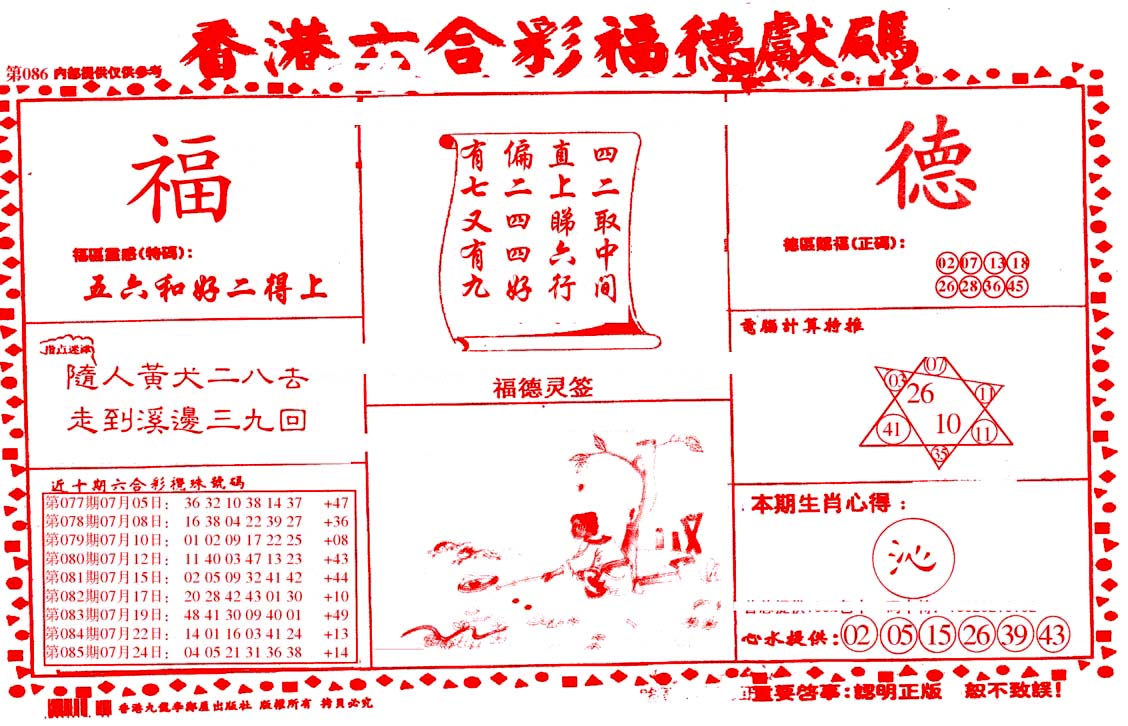 香港六合彩福德獻碼
第086 内部提供仅供参考
福
福區靈感(特碼):
五六和好二得上
四二取中间
直上睇六行
偏二四四好
有七又有九
福德灵签
德
德區賜福(正碼):
02 07 13 18
26 28 36 45
指点迷津
隨人黃犬二八去
走到溪邊三九回
電腦計算特推
07
03 26 11
41 10 11
35
近十期六合彩攪珠號碼
第077期07月05日: 36 32 10 38 14 37 +47
第078期07月08日: 16 38 04 22 39 27 +36
第079期07月10日: 01 02 09 17 22 25 +08
第080期07月12日: 11 40 03 47 13 23 +43
第081期07月15日: 02 05 09 32 41 42 +44
第082期07月17日: 20 28 42 43 01 30 +10
第083期07月19日: 48 41 30 09 40 01 +49
第084期07月22日: 14 01 16 03 41 24 +13
第085期07月24日: 04 05 21 31 36 38 +14
本期生肖心得:
沁
心水提供: 02 05 15 26 39 43
香港九龍 出版社 版權所有 拷貝必究
重要啓事:認明正版 恕不致誤!